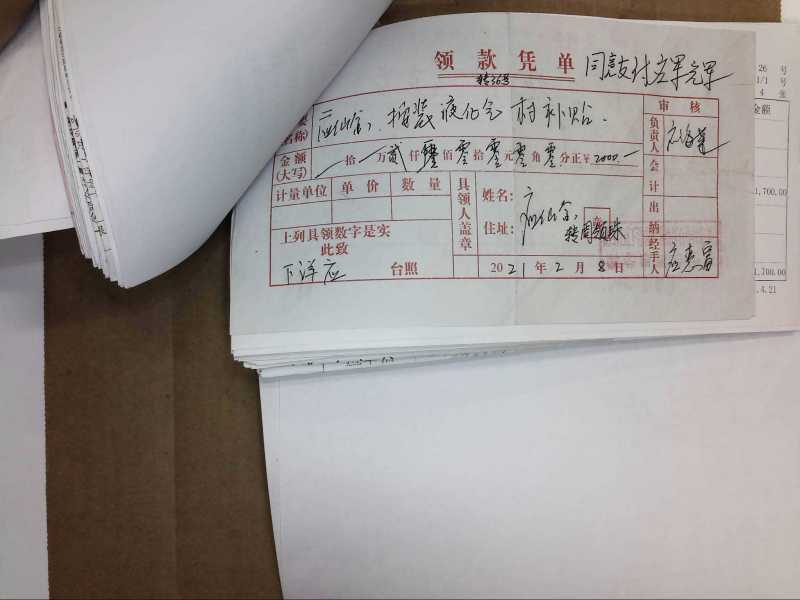 领款凭单 同意支付
转36号
名称) 应仙金, 按装液化仓 村补贴.
审核
金额
(大写) 拾 万 贰 仟 零 佰 零 拾 零 元 零 角 零 分正¥ 2000.—
负责人
计量单位 单价 数量
会计
具领人盖章
姓名: 应仙金,
住址: 转周领珠
出纳
上列具领数字是实
此致
下洋应 台照
2021年2月8日
经手人 应惠富
26 号
1/1 号
4 张
金额
1,700.00
1,700.00
.4.21